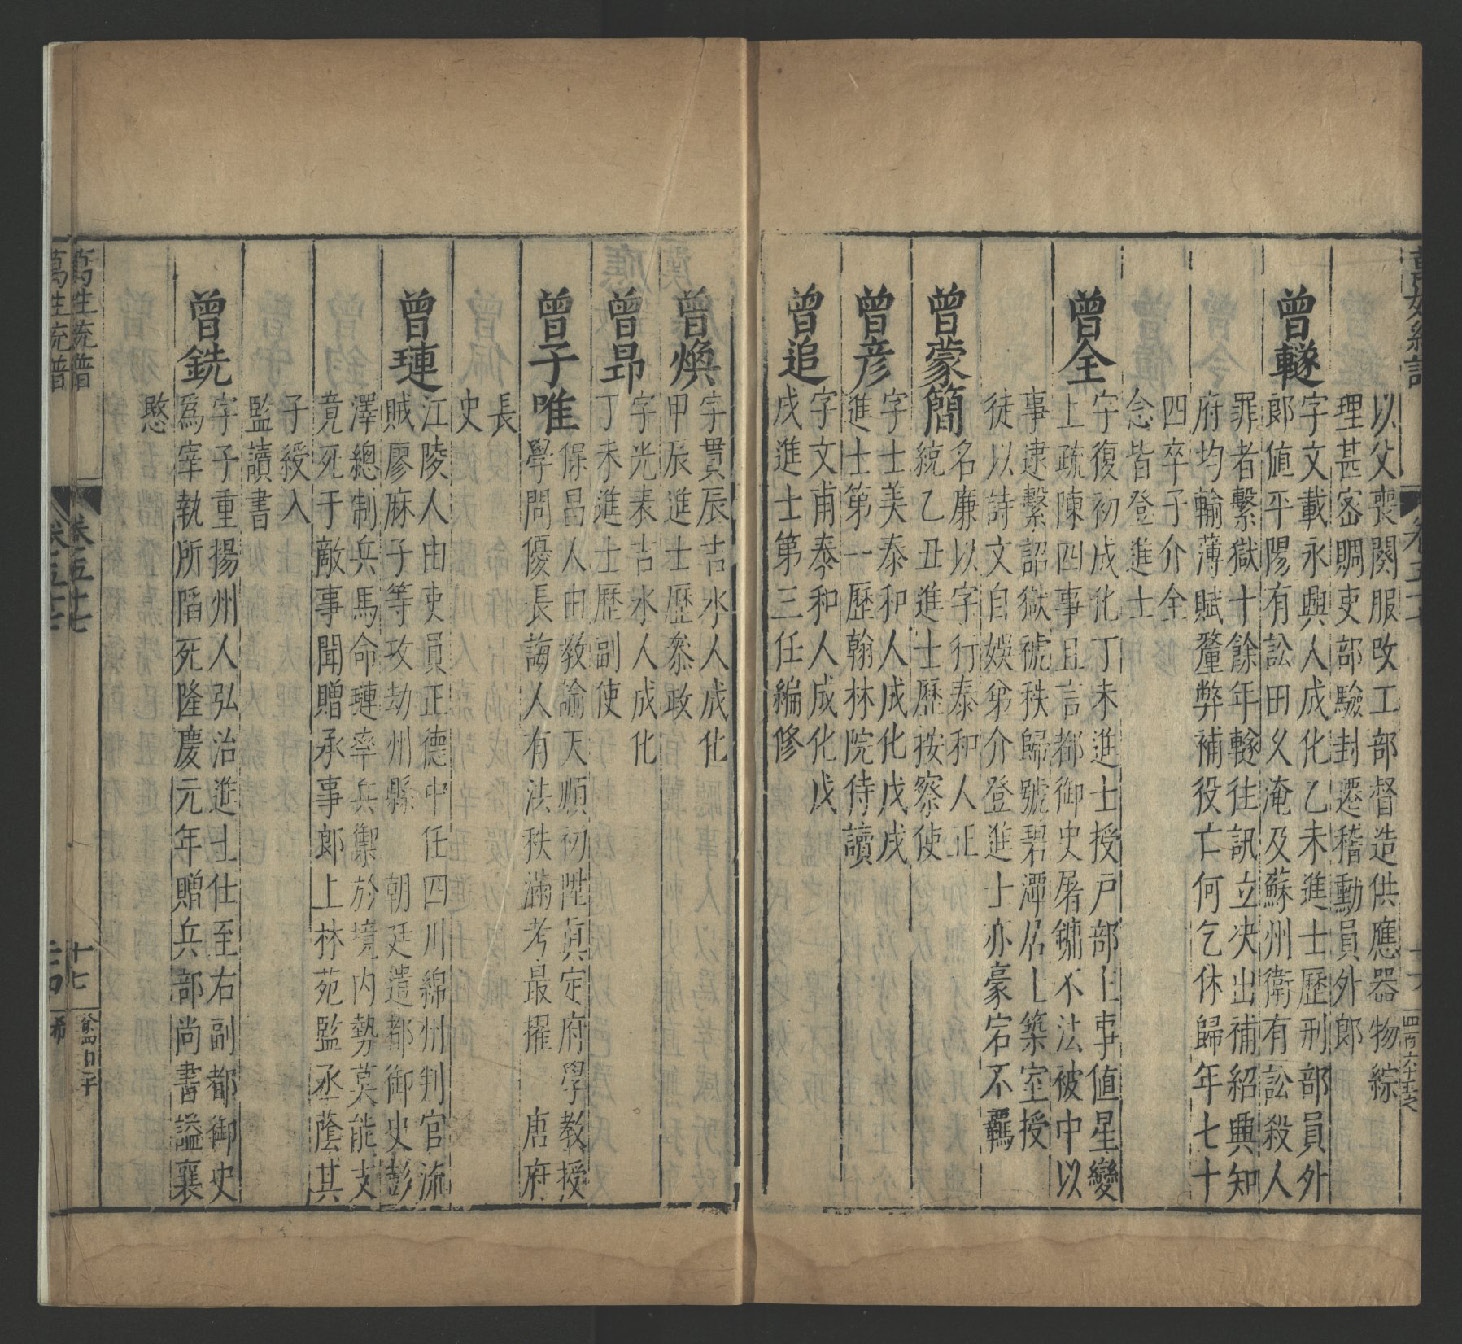 以父喪闋服改工部督造供應器物綜
理甚密賙吏部驗封遷稽勳員外郎
曾轍
字文載永興人成化乙未進士歷刑部員外
郎値平陽有訟田久淹及蘇州衛有訟殺人
罪者繫獄十餘年轍往訊立决出補紹興知
府均輸薄賦釐弊補役亡何乞休歸年七十
四卒子介全
念皆登進士
曾全
字復初成化丁未進士授戸部主事値星變
上疏陳四事且言都御史屠鏞不法被中以
事逮繫詔獄禠秩歸號碧潭居士築室授
徒以詩文自娛弟介登進士亦豪宕不羈
曾蒙簡
名廉以字行泰和人正
統乙丑進士歷按察使
曾彦
字士美泰和人成化戊戌
進士第一歷翰林院侍讀
曾追
字文甫泰和人成化戊
戌進士第三任編修
曾煥
字貫辰吉水人成化
甲辰進士歷叅政
曾昻
字光表吉水人成化
丁未進士歷副使
曾子唯
保昌人由教諭天順初陞眞定府學教授
學問優長誨人有法秩滿考最擢 唐府
長
史
曾璉
江陵人由吏員正德中任四川綿州判官流
賊廖麻子等攻劫州縣 朝廷遣都御史彭
澤總制兵馬命璉率兵禦於境内勢莫能支
竟死于敵事聞贈承事郎上林苑監丞蔭其
子授入
監讀書
曾銑
字子重揚州人弘治進士仕至右副都御史
爲宰執所陷死隆慶元年贈兵部尚書謚襄
愍
萬姓統譜
卷五十七
十七